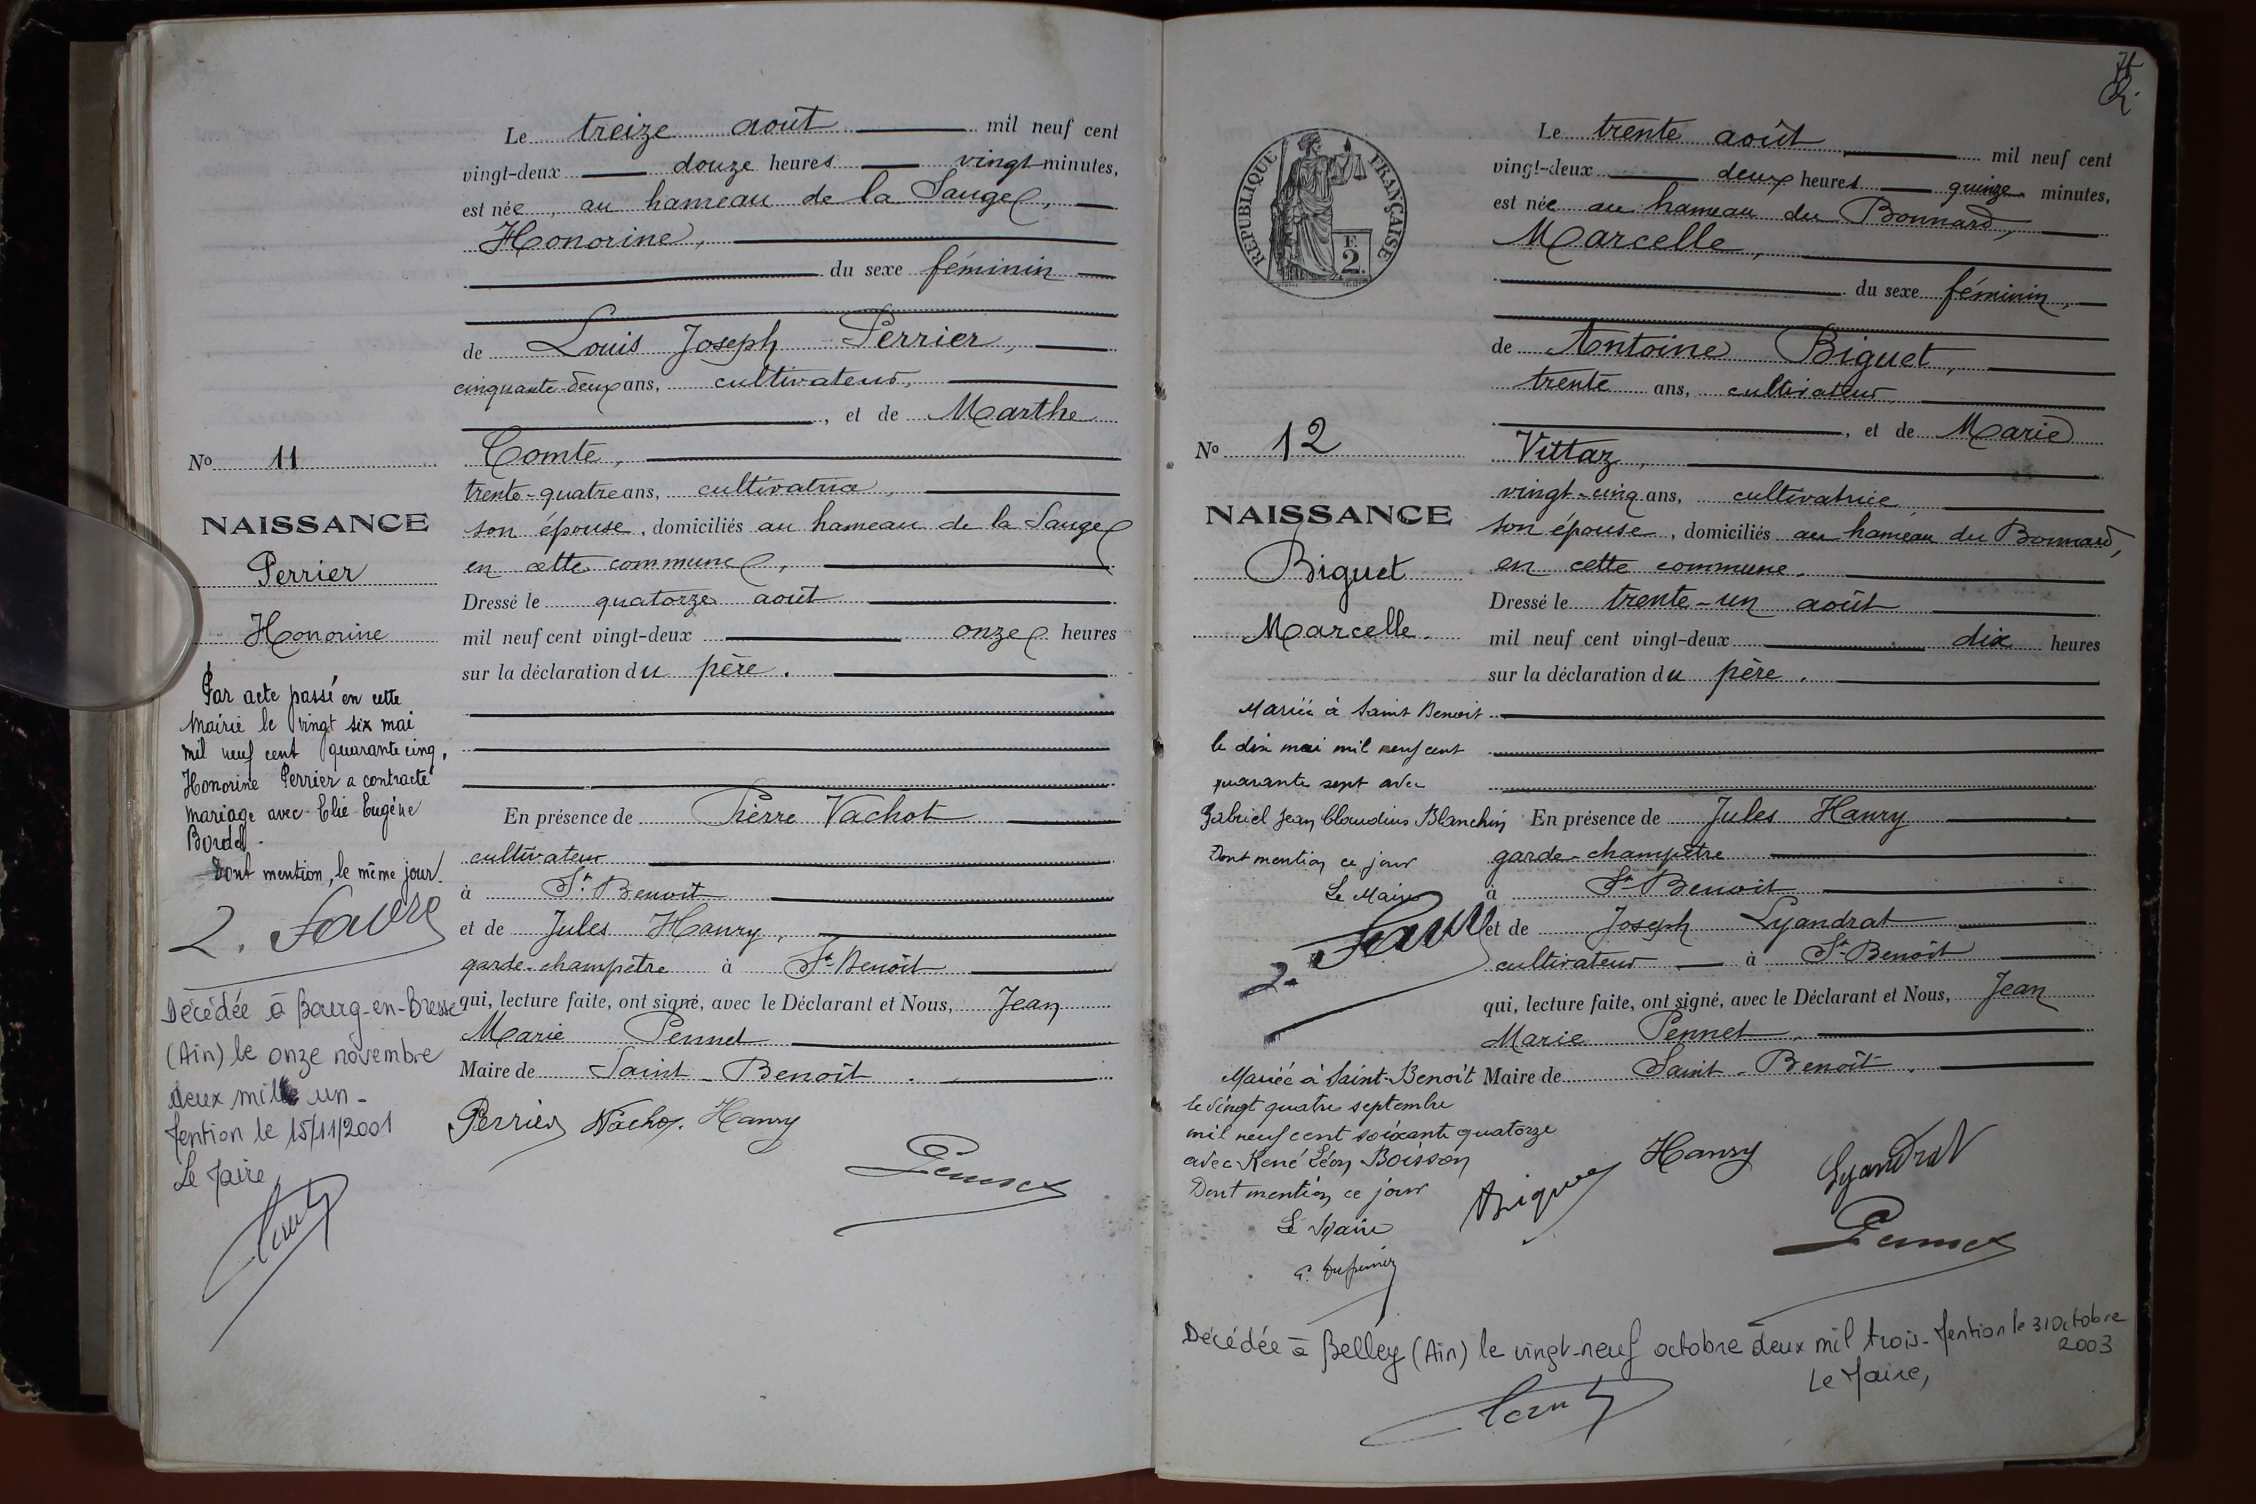 Le treize août mil neuf cent
vingt-deux douze heures vingt minutes,
est née, au hameau de la Sauge,
Honorine,
du sexe féminin
de Louis Joseph Perrier,
cinquante-deux ans, cultivateur,
, et de Marthe
Comte,
trente-quatre ans, cultivatrice,
son épouse, domiciliés au hameau de la Sauge
en cette commune,
Dressé le quatorze août
mil neuf cent vingt-deux onze heures
sur la déclaration du père.
En présence de Pierre Vachot
cultivateur
à St. Benoit
et de Jules Hanry,
garde-champêtre à St-Benoît
qui, lecture faite, ont signé, avec le Déclarant et Nous, Jean
Marie Pennet
Maire de Saint-Benoît.
Perrier Vachot. Hanry
Pennet
No 11
NAISSANCE
Perrier
Honorine
Par acte passé en cette
Mairie le vingt six mai
mil neuf cent quarante cinq,
Honorine Perrier a contracté
mariage avec Elie Eugène
Bordel.
Dont mention, le même jour.
Décédée à Bourg-en-Bresse
(Ain) le onze novembre
deux mille un-
Mention le 15/11/2001
Le Maire
REPUBLIQUE FRANÇAISE
F.
2.
Le trente août mil neuf cent
vingt-deux deux heures quinze minutes,
est née au hameau du Bonnard,
Marcelle,
du sexe féminin,
de Antoine Biguet,
trente ans, cultivateur
, et de Marie
Vittaz,
vingt-cinq ans, cultivatrice,
son épouse, domiciliés au hameau du Bonnard,
en cette commune.
Dressé le trente-un août
mil neuf cent vingt-deux dix heures
sur la déclaration du père.
En présence de Jules Hanry
garde-champêtre
à St-Benoît
et de Joseph Lyandrat
cultivateur à St-Benoît
qui, lecture faite, ont signé, avec le Déclarant et Nous, Jean
Marie Pennet,
Maire de Saint-Benoît.
Biguet Hanry Lyandrat
Pennet
No 12
NAISSANCE
Biguet
Marcelle.
Mariée à Saint Benoit
le dix mai mil neuf cent
quarante sept avec
Gabriel Jean Claudius Blanchin
Dont mention ce jour
Le Maire
Mariée à Saint-Benoît
le vingt quatre septembre
mil neuf cent soixante quatorze
avec René Léon Boisson
Dont mention ce jour
Le Maire
Décédée à Belley (Ain) le vingt-neuf octobre deux mil trois- Mention le 31 Octobre
2003
Le Maire,